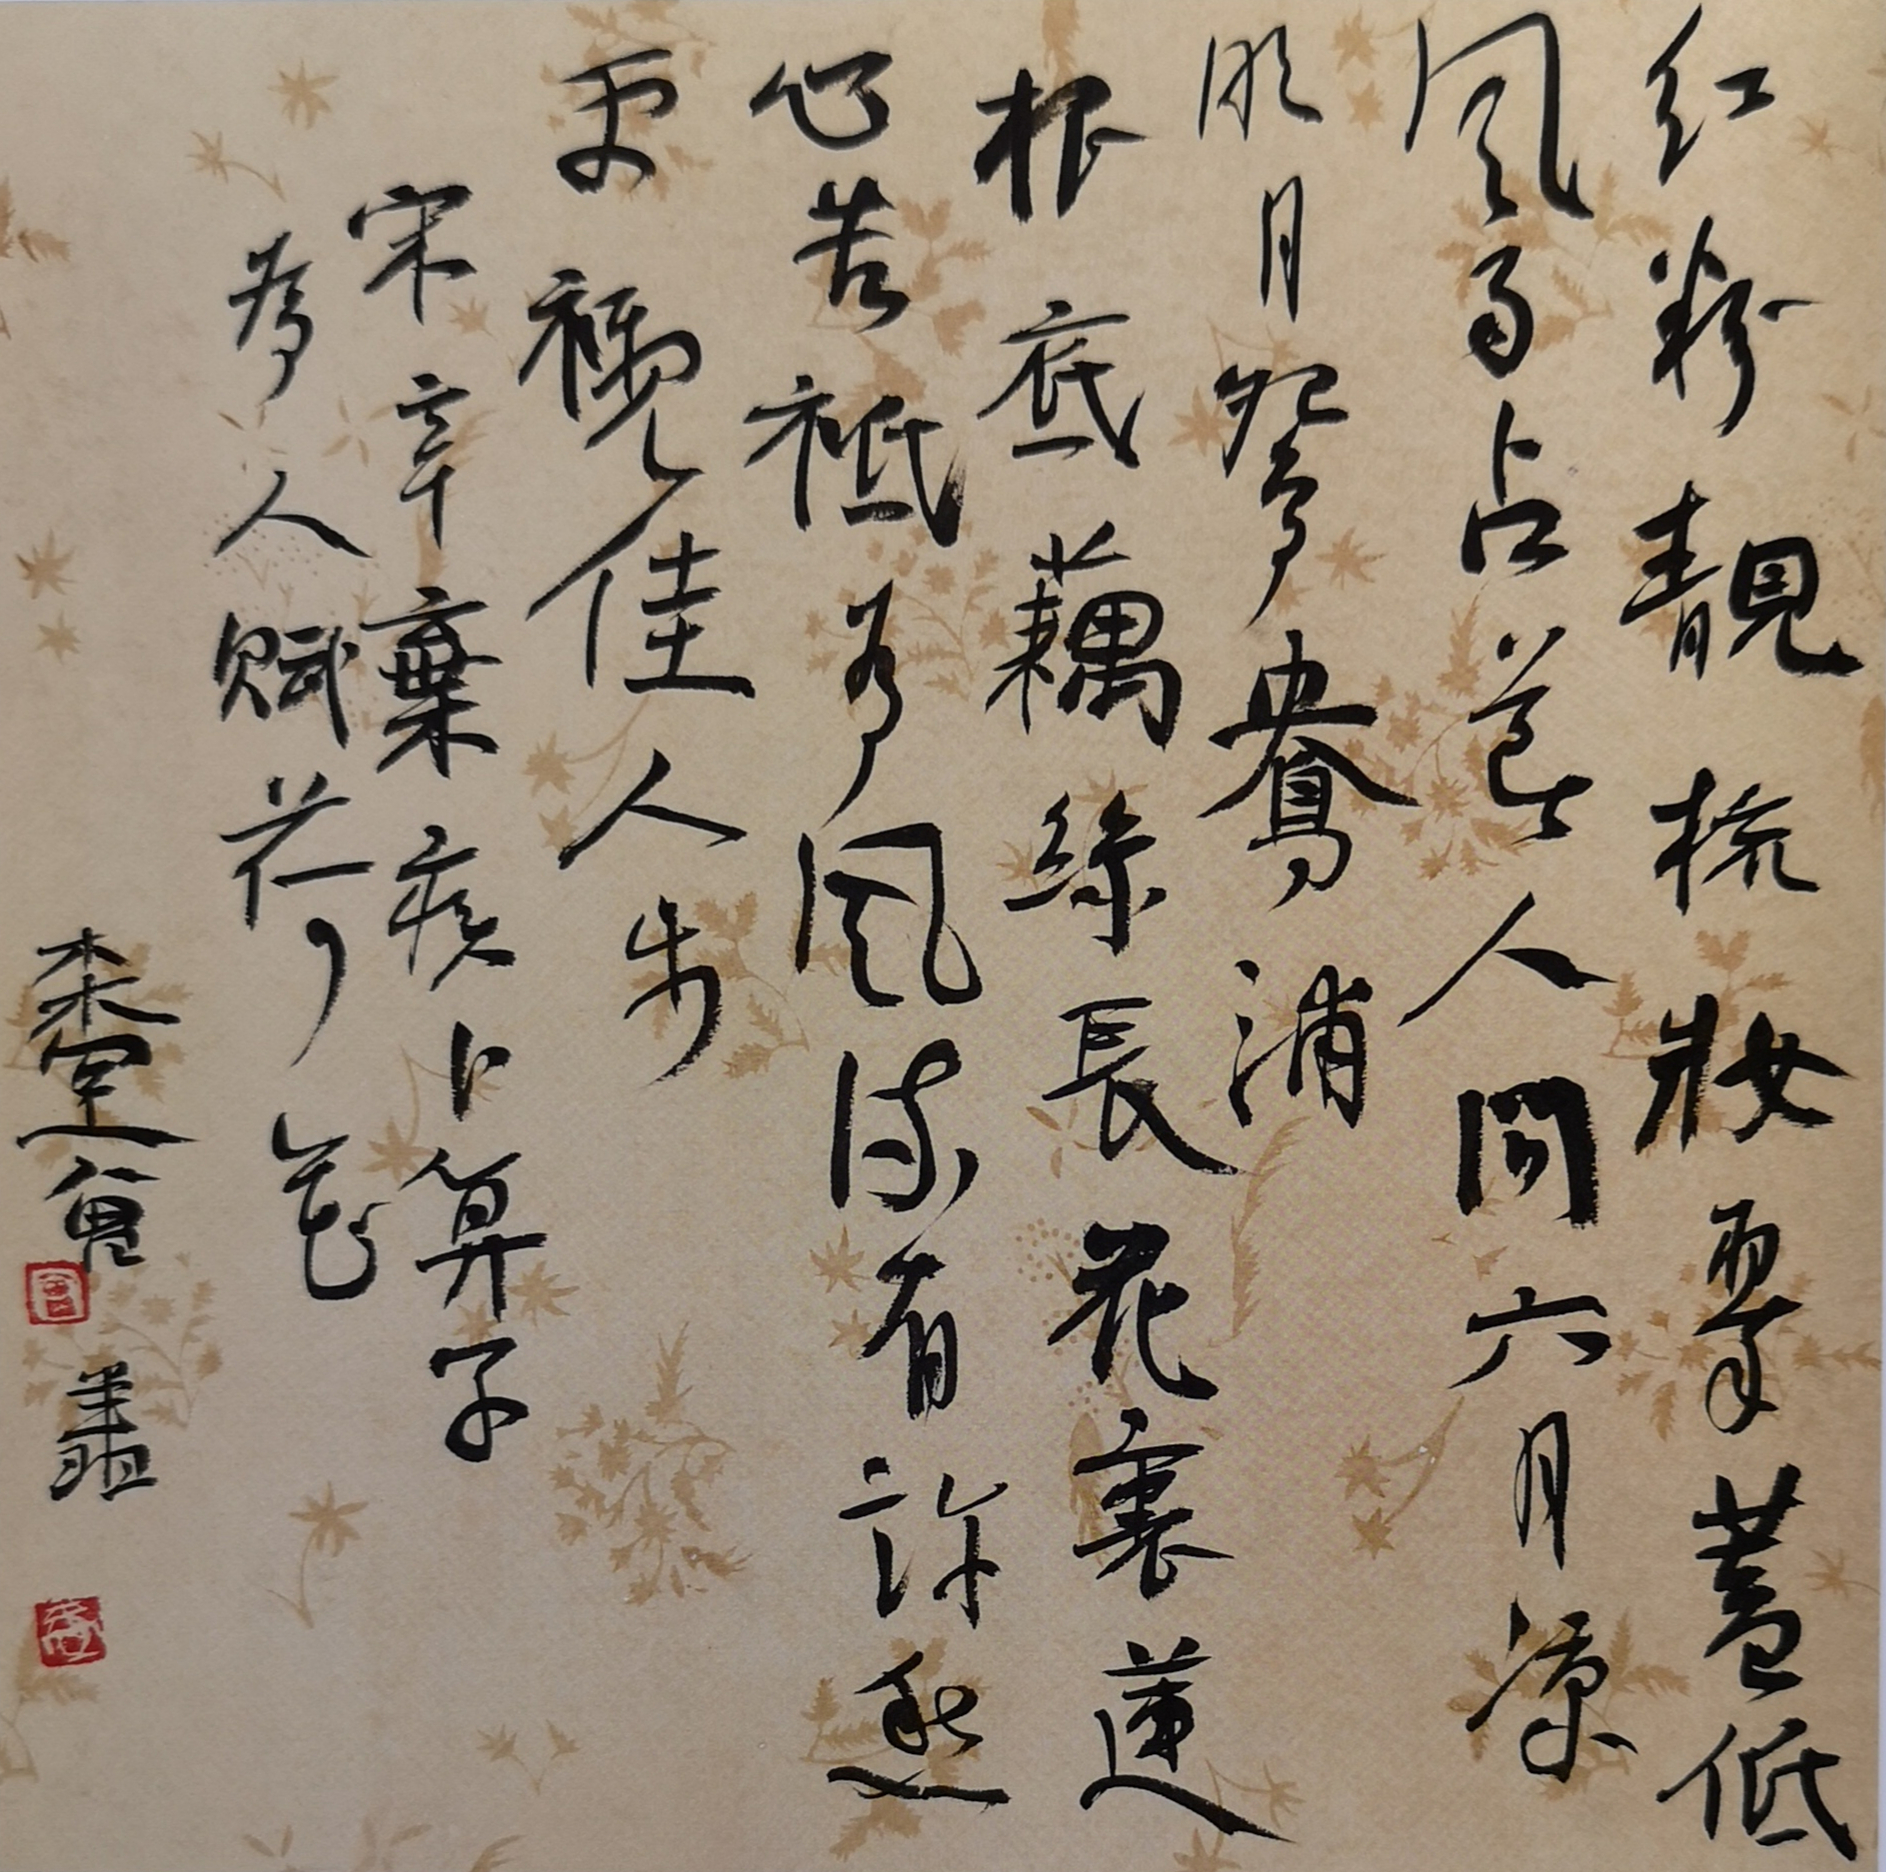 紅粉靚梳妝翠蓋低
風雨占斷人間六月涼
明月鴛鴦浦
根底藕絲長花裏蓮
心苦祗為風流有許愁
更襯佳人步
宋辛棄疾卜算子
為人賦荷花